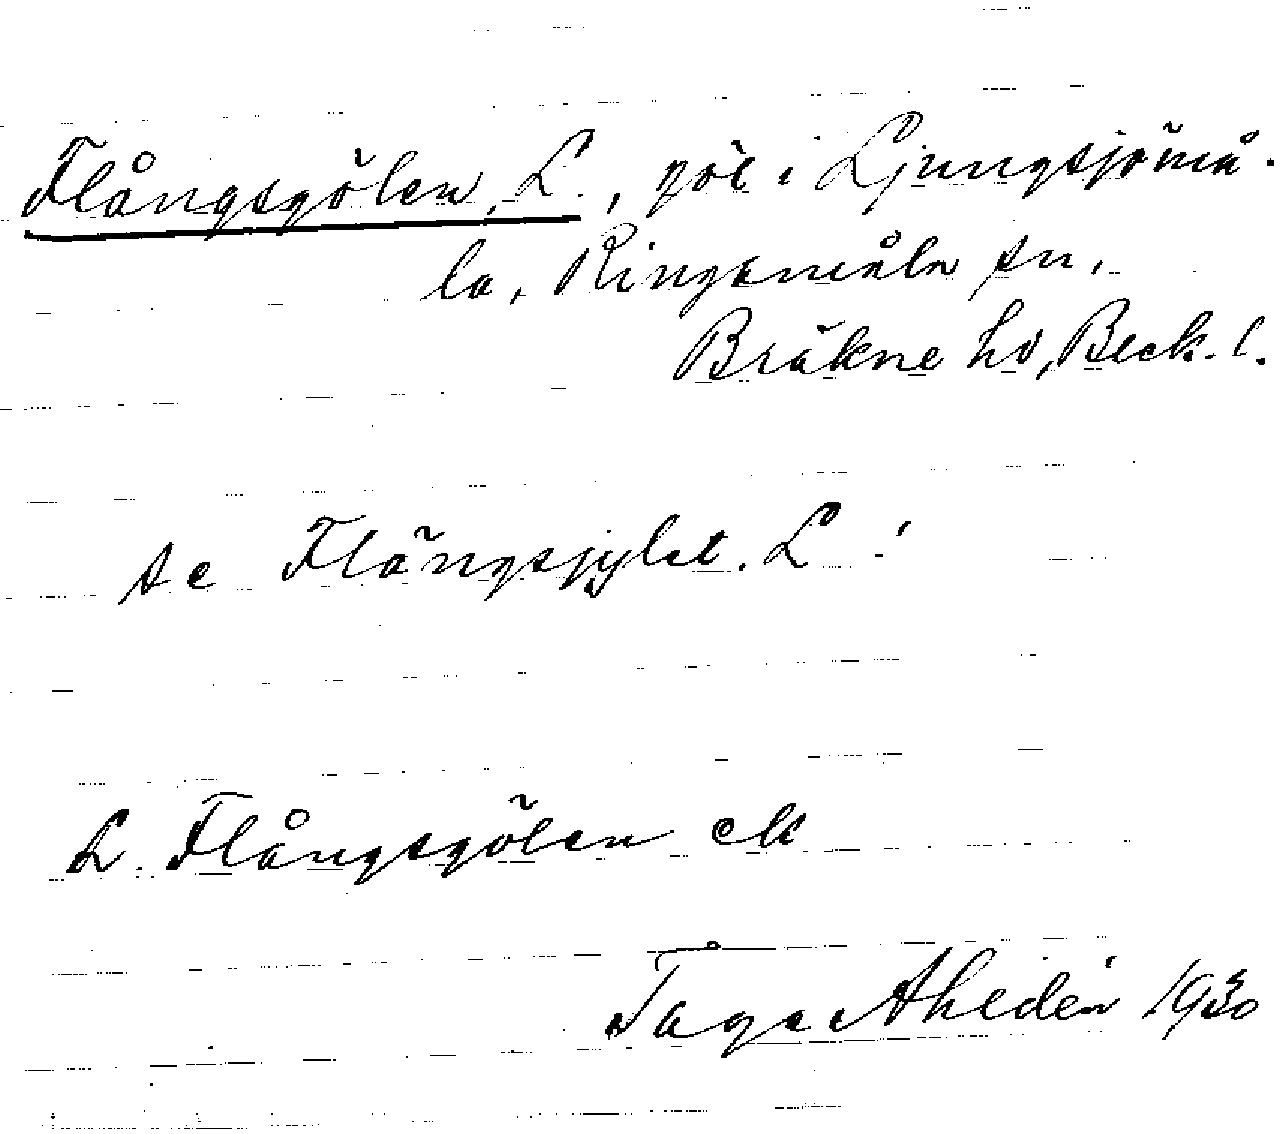 Flångsgölen, L., göl i Ljungsjömå-
la, Ringamåla sn,
Bräkne hd, Bleck. l.
se Flångsjylet. L !
L. Flångsgölen ek
Tage Ahldén 1930